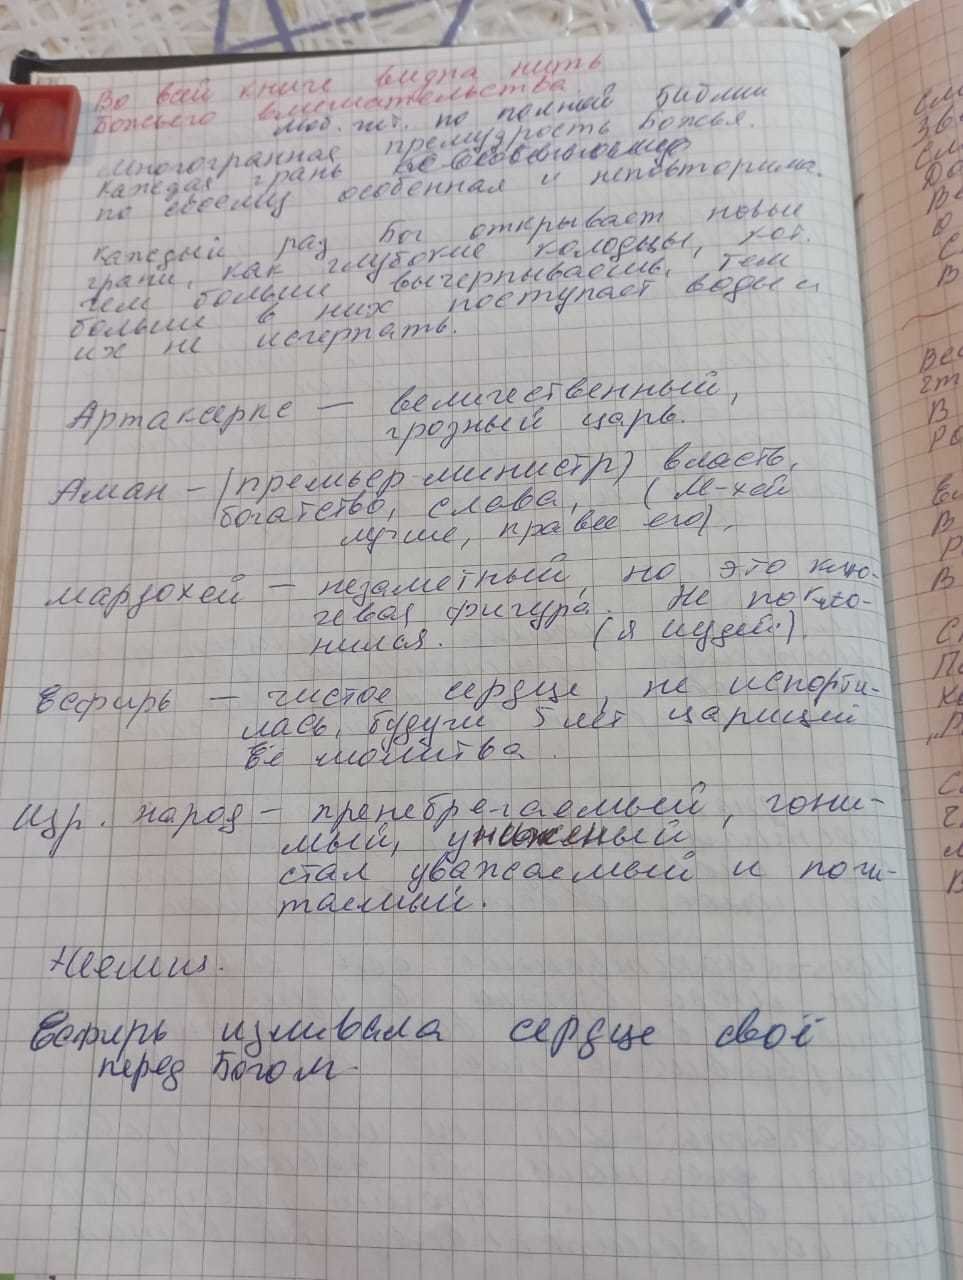 Во всей книге видна нить
Божьего вмешательства
по полной Библии
Многогранная премудрость Божья.
Каждая грань
по своему особенная и неповторима.
Каждый раз Бог открывает новые
грани, как глубокие колодцы, кот.
чем больше вычерпываешь, тем
больше в них поступает воды и
их не исчерпать.
Артаксеркс — величественный,
грозный царь.
Аман — (премьер-министр) власть,
богатство, слава, (М-хей
лучше, правее его).
Мардохей — незаметный, но это клю-
чевая фигура. Не покло-
нился. (я иудей!)
Есфирь — чистое сердце, не испорти-
лась, будучи 5 лет царицей
Её молитва.
Изр. народ — пренебрегаемый, гони-
мый, униженный
стал уважаемый и почи-
таемый.
Неемия.
Есфирь изливала сердце своё
перед Богом.
см
Зв
см
До
Ве
О
С
В
Вес
В
ро
В
р
В
С
По
Ка
С
В